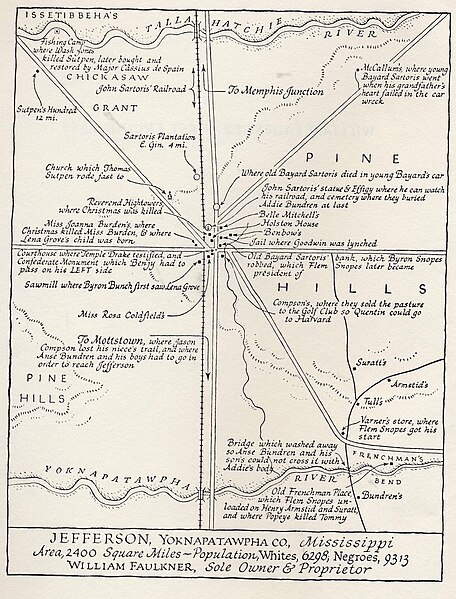 ISSETIBBEHA'S
TALLAHATCHIE
RIVER
Fishing Camp
where Wash Jones
killed Sutpen, later bought and
restored by Major Cassius de Spain
CHICKASAW
John Sartoris' Railroad
GRANT
To Memphis Junction
McCallum's, where young
Bayard Sartoris went
when his grandfather's
heart failed in the car
wreck
Sutpen's Hundred
12 mi.
Sartoris Plantation
E. Gin. 4 mi.
PINE
Church which Thomas
Sutpen rode fast to
Where old Bayard Sartoris died in young Bayard's car
John Sartoris' statue & Effigy where he can watch
his railroad, and cemetery where they buried
Addie Bundren at last
Reverend Hightower's,
where Christmas was killed
Belle Mitchell's
Holston House
Benbow's
Jail where Goodwin was lynched
Miss Joanna Burden's, where
Christmas killed Miss Burden, & where
Lena Grove's child was born
Courthouse where Temple Drake testified, and
Confederate Monument which Benjy had to
pass on his LEFT side
Old Bayard Sartoris' bank, which Byron Snopes
robbed, which Flem Snopes later became
president of
HILLS
Sawmill where Byron Bunch first saw Lena Grove
Compson's, where they sold the pasture
to the Golf Club so Quentin could go
to Harvard
Miss Rosa Coldfield's
To Mottstown, where Jason
Compson lost his niece's trail, and where
Anse Bundren and his boys had to go in
order to reach Jefferson
PINE
HILLS
Suratt's
Armstid's
Tull's
Varner's store, where
Flem Snopes got his
start
Bridge which washed away
so Anse Bundren and his
sons could not cross it with
Addie's body
FRENCHMAN'S
BEND
YOKNAPATAWPHA
RIVER
Old Frenchman Place
which Flem Snopes un-
loaded on Henry Armstid and Suratt,
and where Popeye killed Tommy
Bundren's
JEFFERSON, YOKNAPATAWPHA CO, Mississippi
Area, 2400 Square Miles – Population, Whites, 6298; Negroes, 9313
WILLIAM FAULKNER, Sole Owner & Proprietor